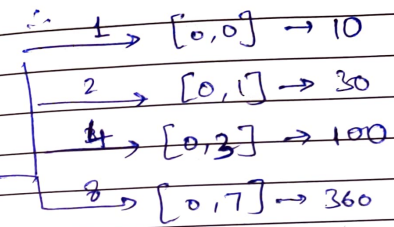 ∴ 1 → [0,0] → 10
2 → [0,1] → 30
4 → [0,3] → 100
8 → [0,7] → 360